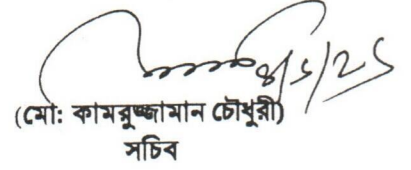 ৪/১/২১
(মো: কামরুজ্জামান চৌধুরী)
সচিব